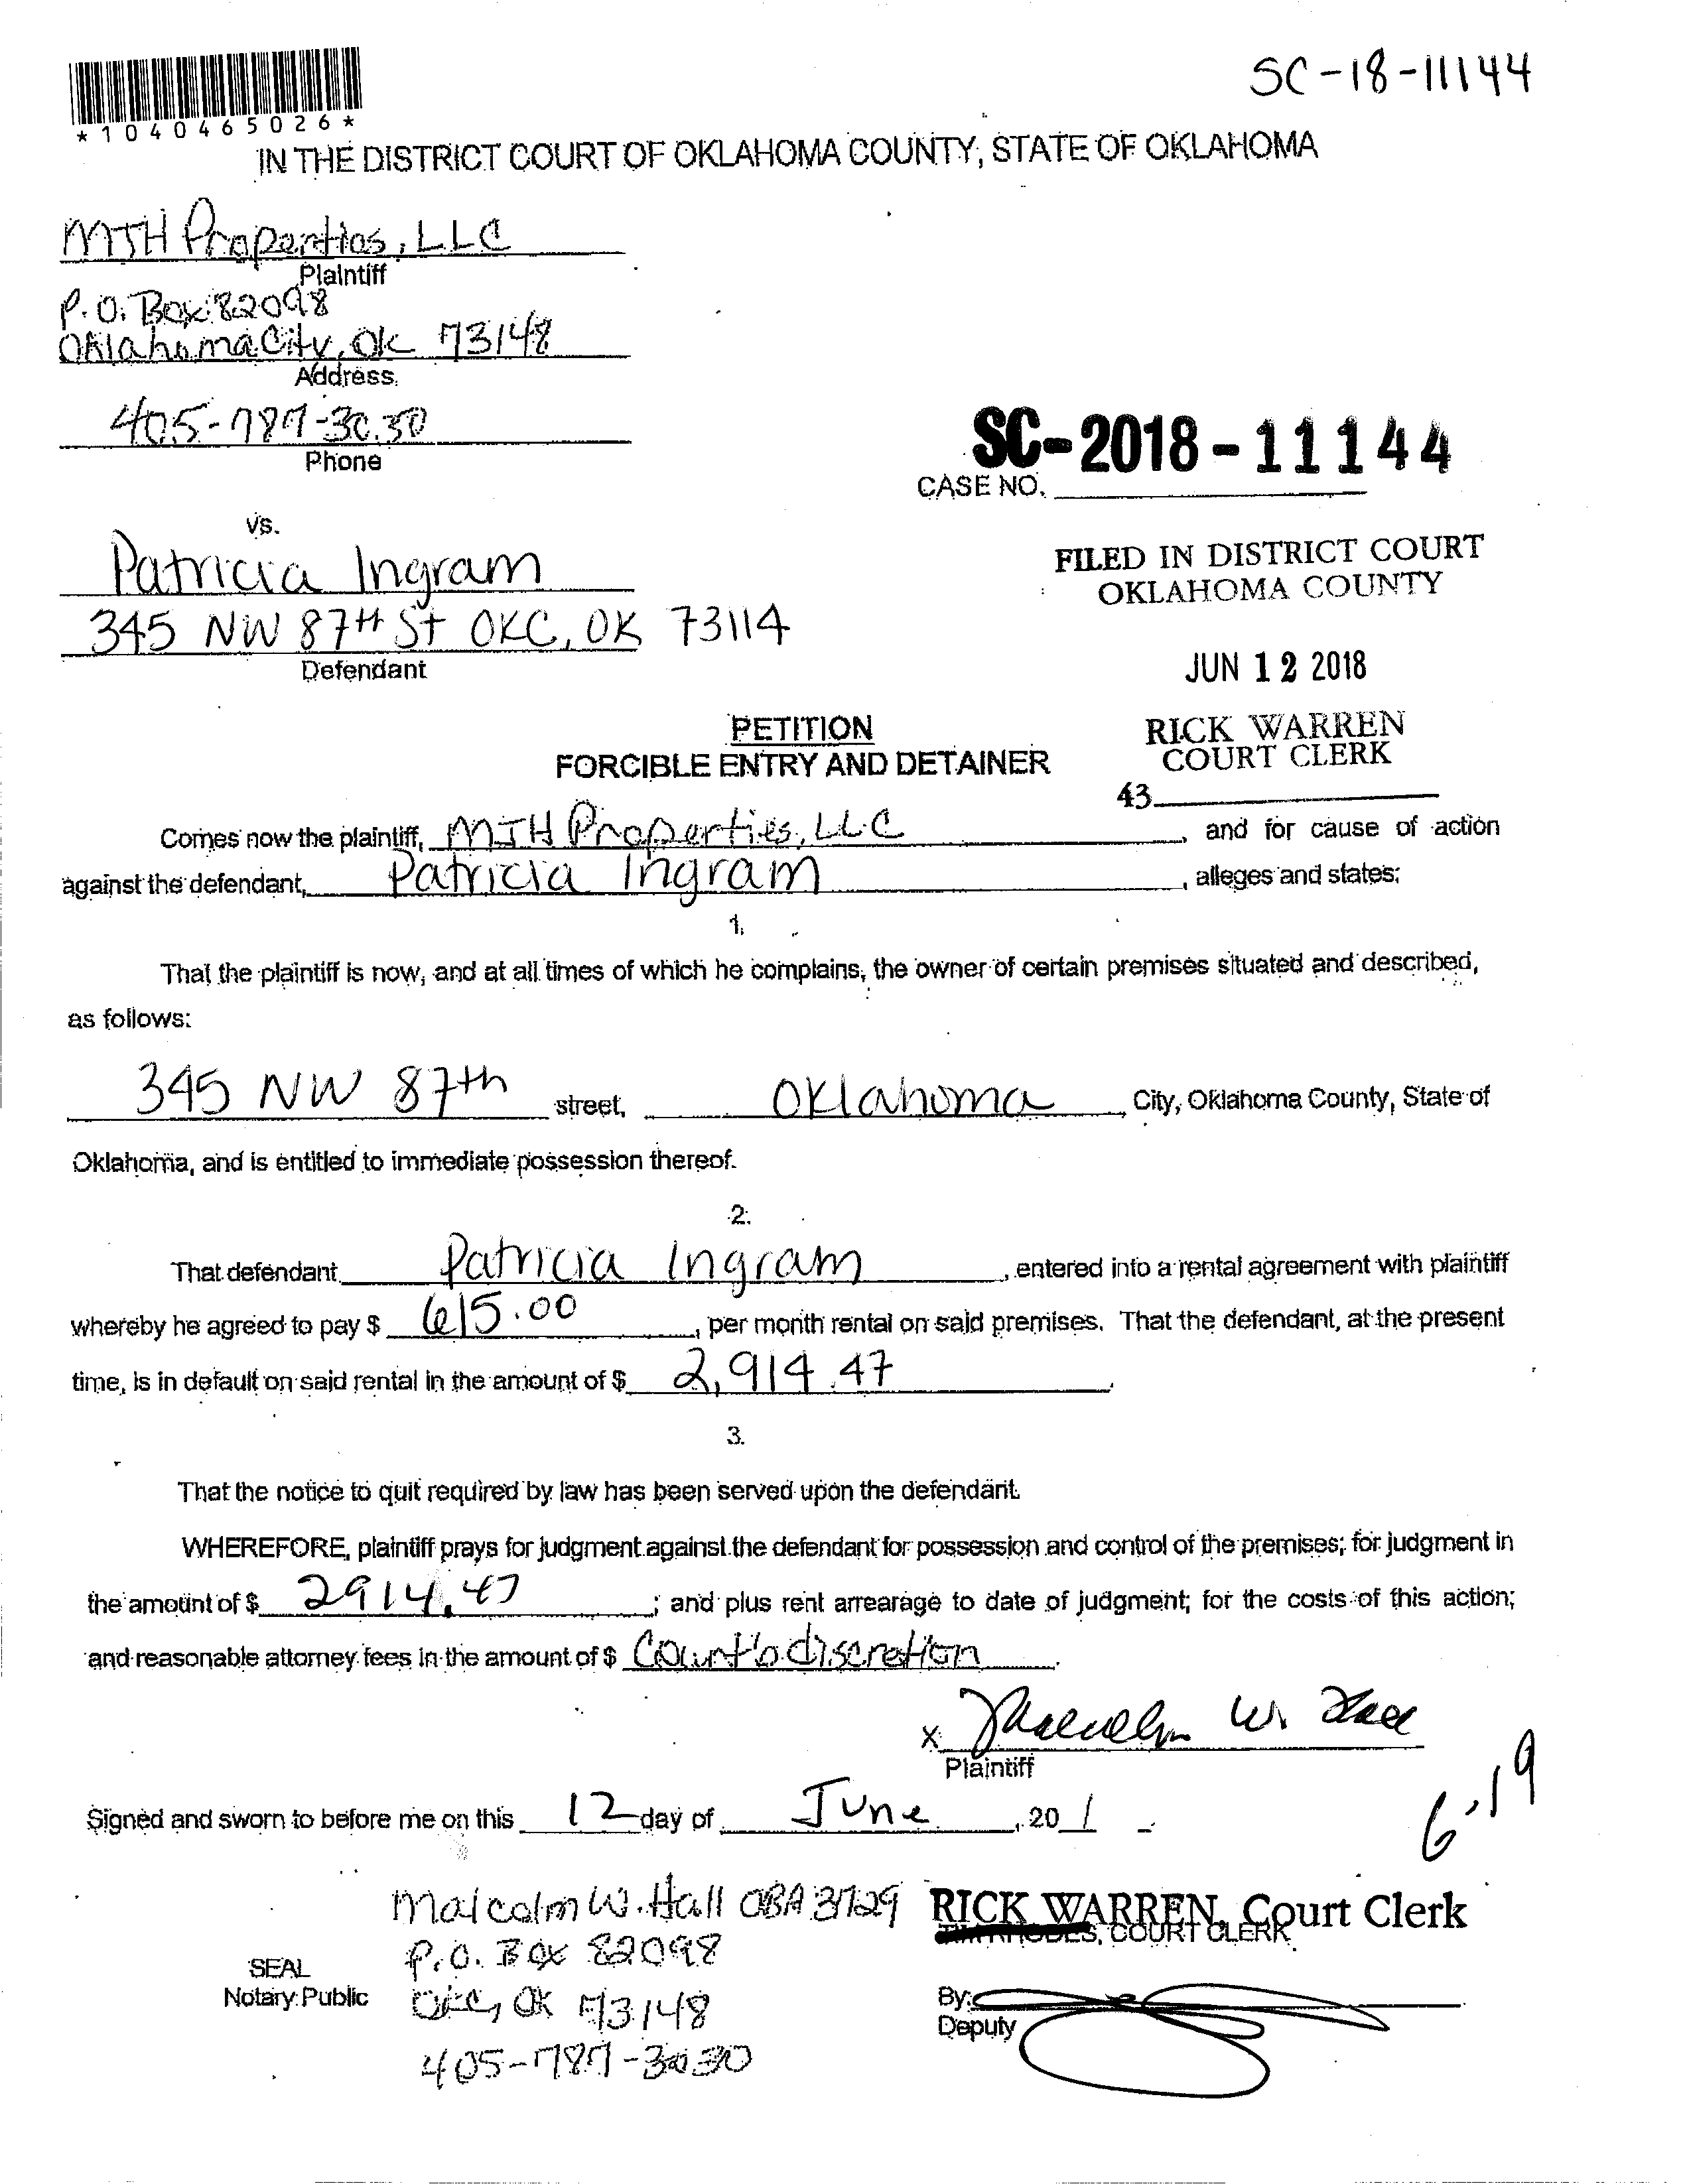 SC-18-11144
*1040465026*
IN THE DISTRICT COURT OF OKLAHOMA COUNTY, STATE OF OKLAHOMA
MJH Properties, LLC
Plaintiff
P.O. Box 82098
Oklahoma City, OK 73148
Address
405-787-3030
Phone
SC-2018-11144
CASE NO.
vs.
Patricia Ingram
345 NW 87th St OKC, OK 73114
Defendant
FILED IN DISTRICT COURT
OKLAHOMA COUNTY
JUN 12 2018
RICK WARREN
COURT CLERK
43
PETITION
FORCIBLE ENTRY AND DETAINER
Comes now the plaintiff, MJH Properties, LLC, and for cause of action
against the defendant, Patricia Ingram, alleges and states:
1.
That the plaintiff is now, and at all times of which he complains, the owner of certain premises situated and described,
as follows:
345 NW 87th street, Oklahoma City, Oklahoma County, State of
Oklahoma, and is entitled to immediate possession thereof.
2.
That defendant Patricia Ingram, entered into a rental agreement with plaintiff
whereby he agreed to pay $ 615.00, per month rental on said premises. That the defendant, at the present
time, is in default on said rental in the amount of $ 2,914.47.
3.
That the notice to quit required by law has been served upon the defendant.
WHEREFORE, plaintiff prays for judgment against the defendant for possession and control of the premises; for judgment in
the amount of $ 2914.47; and plus rent arrearage to date of judgment; for the costs of this action;
and reasonable attorney fees in the amount of $ Court's discretion.
X Malcolm W. Hall
Plaintiff
6-19
Signed and sworn to before me on this 12 day of June, 201
Malcolm W. Hall OBA 3729
P.O. Box 82098
OKC, OK 73148
405-787-3030
SEAL
Notary Public
RICK WARREN, Court Clerk
COURT CLERK
By:
Deputy